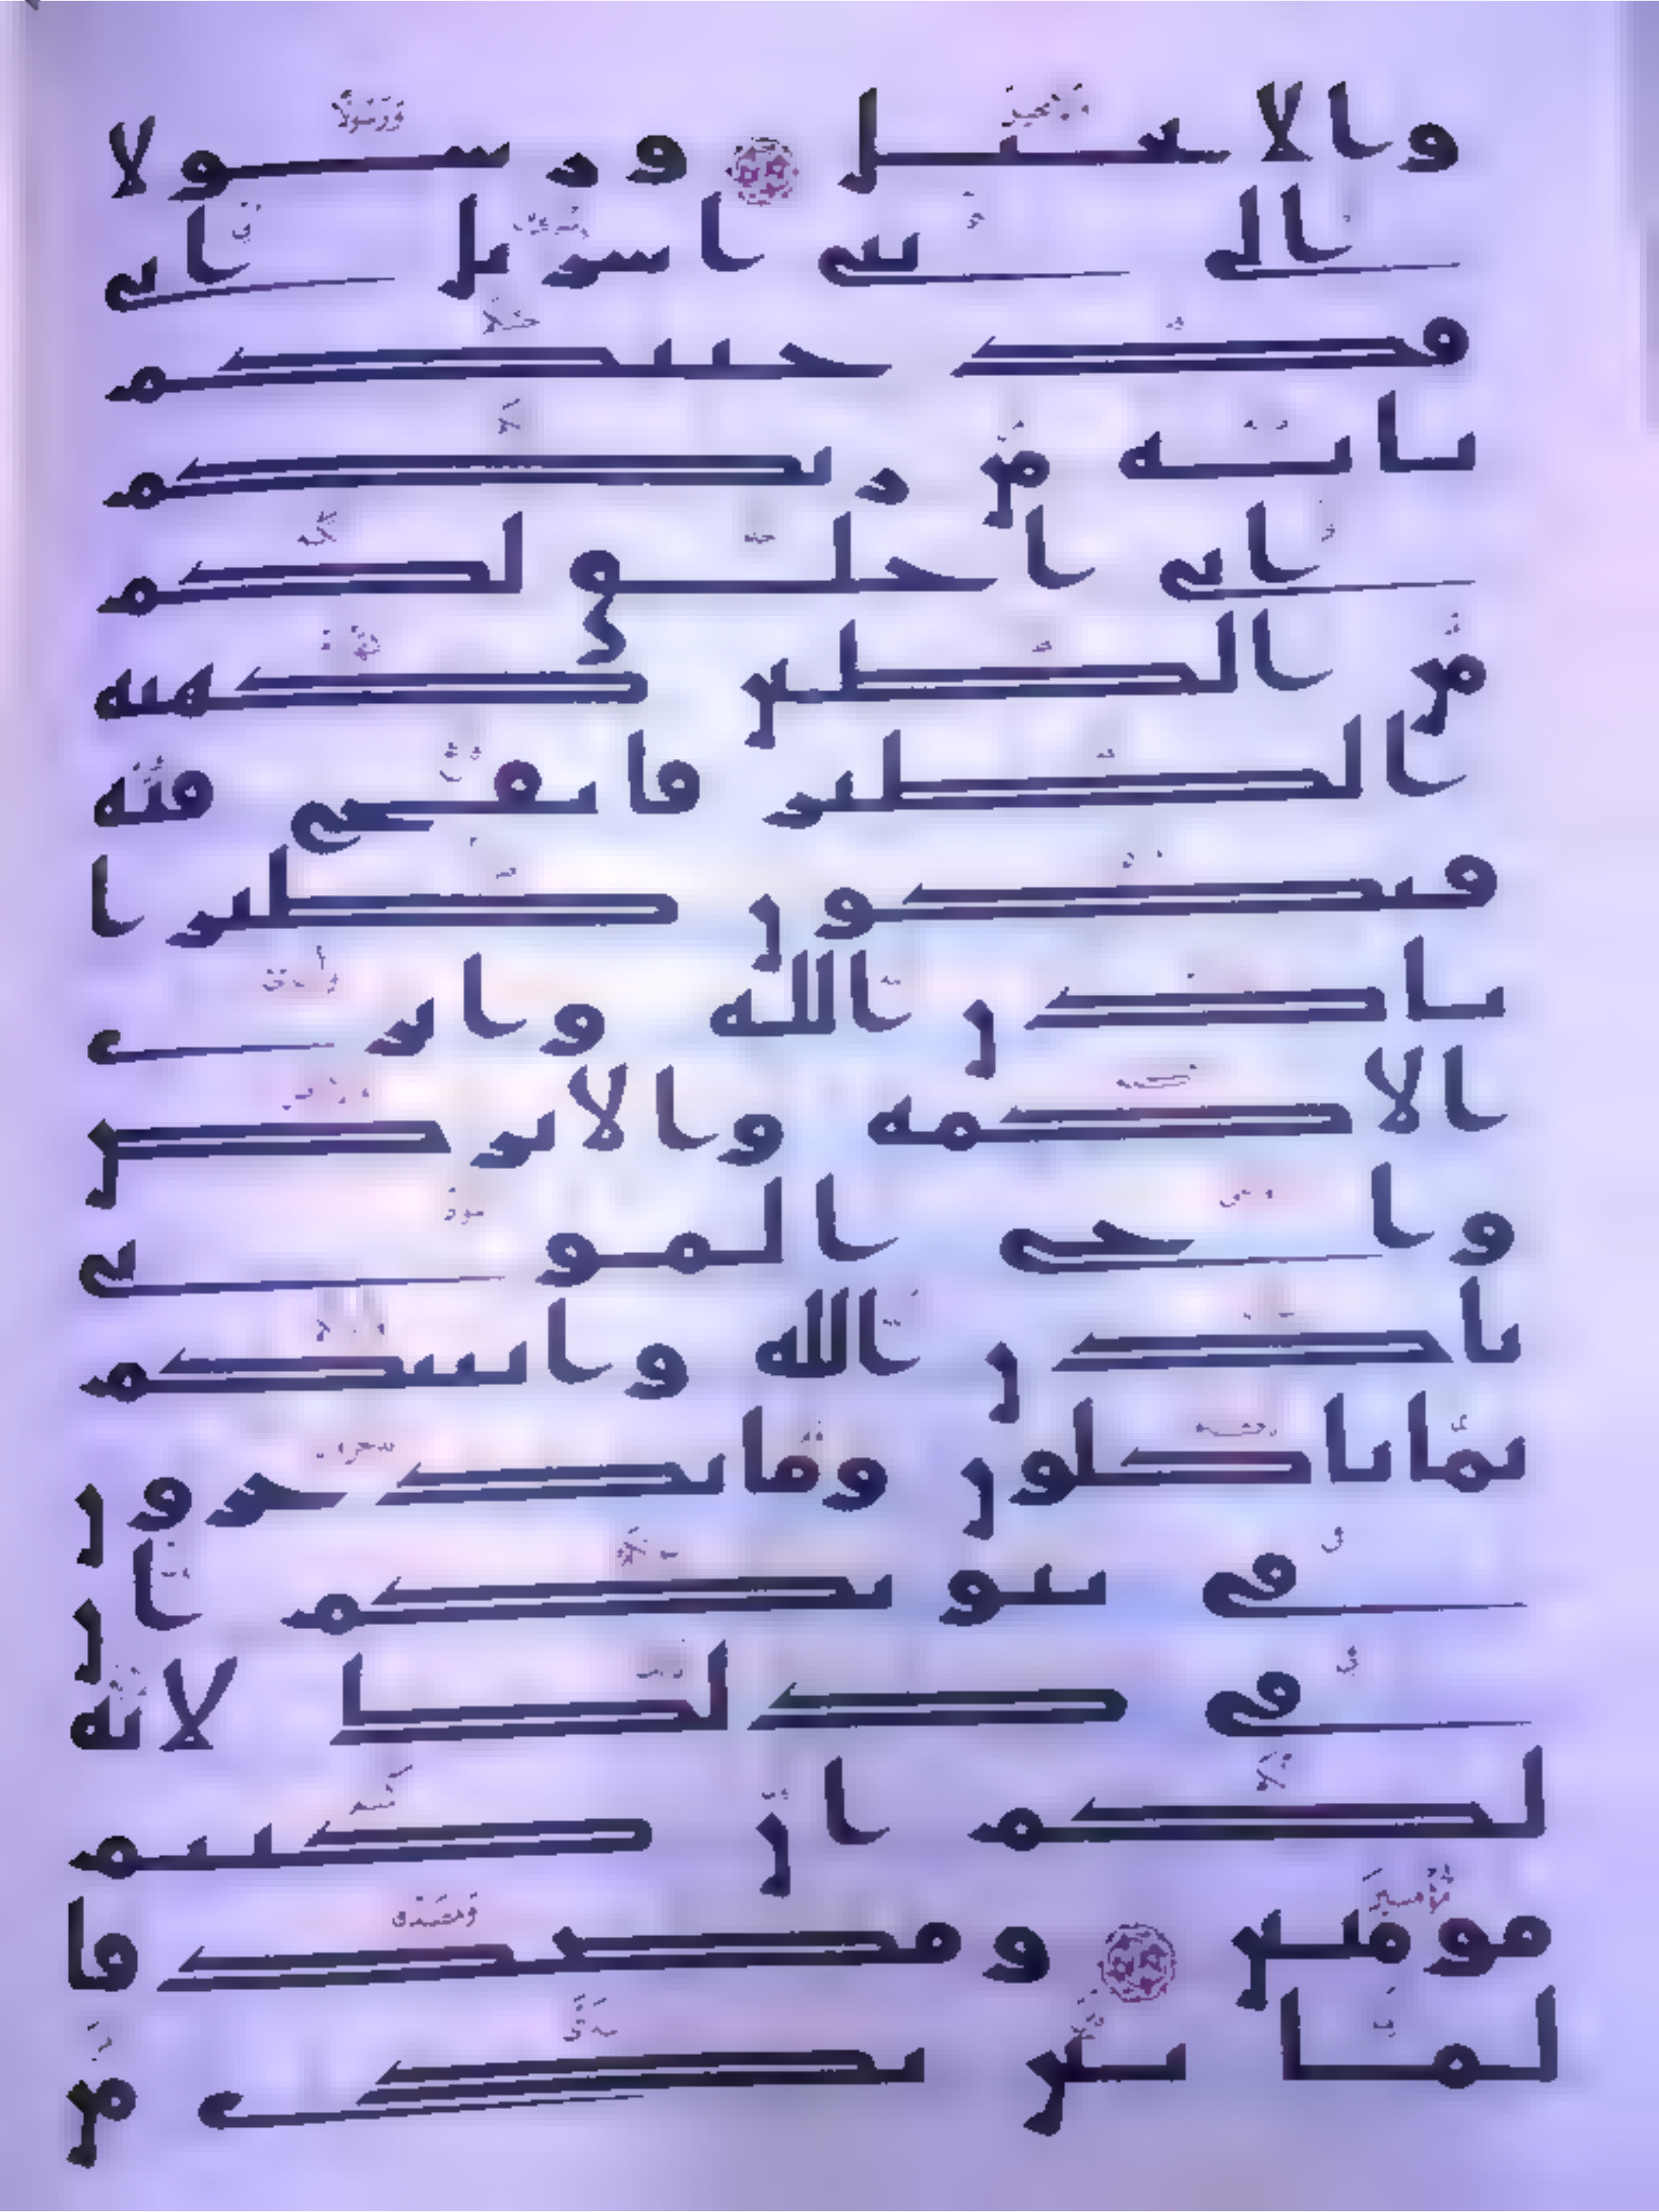 والانجيل ورسولا
الى بني اسريل اني
قد جئتكم
باية من ربكم
اني اخلق لكم
من الطين كهية
الطير فانفخ فيه
فيكون طيرا
باذن الله وابرى
الاكمه والابرص
واحي الموتى
باذن الله وانبئكم
بما تاكلون وما تدخرون
في بيوتكم ان
في ذلك لاية
لكم ان كنتم
مومنين ومصدقا
لما بين يدي من